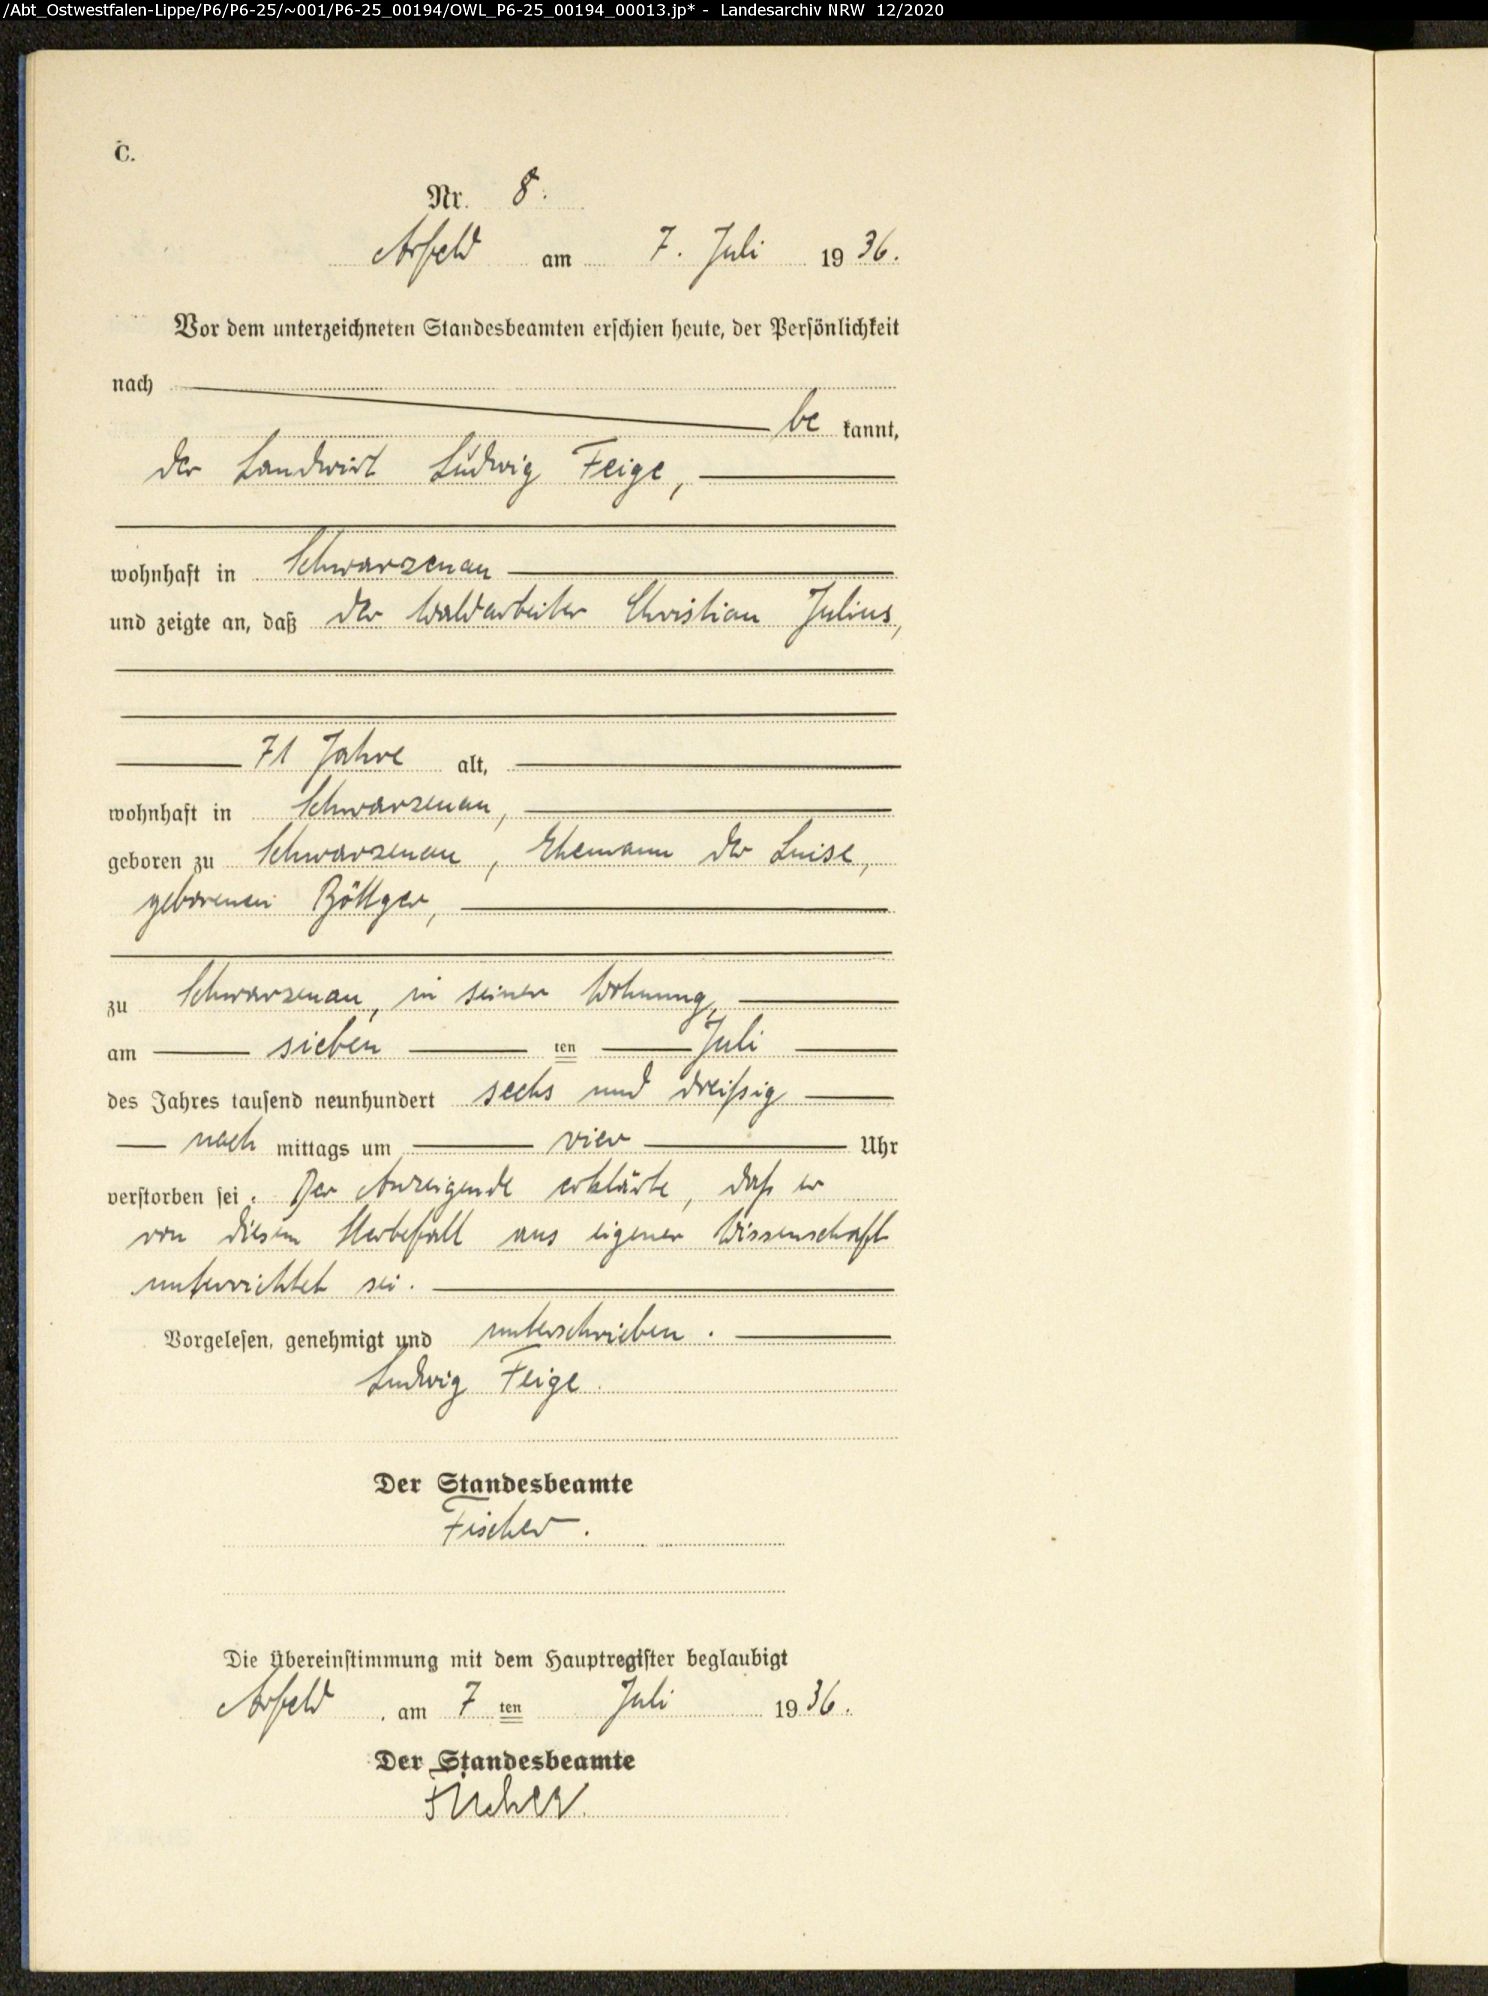 /Abt_Ostwestfalen-Lippe/P6/P6-25/~001/P6-25_00194/OWL_P6-25_00194_00013.jp* - Landesarchiv NRW 12/2020
C.
Nr. 8.
Arfeld am 7. Juli 1936.
Vor dem unterzeichneten Standesbeamten erschien heute, der Persönlichkeit
nach
be kannt,
der Landwirt Ludwig Feige,
wohnhaft in Schwarzenau
und zeigte an, daß der Waldarbeiter Christian Julius,
71 Jahre alt,
wohnhaft in Schwarzenau,
geboren zu Schwarzenau, Ehemann der Luise,
geborenen Böttger,
zu Schwarzenau, in seiner Wohnung,
am sieben ten Juli
des Jahres tausend neunhundert sechs und dreißig
nach mittags um vier Uhr
verstorben sei. Der Anzeigende erklärte, daß er
von diesem Sterbefall aus eigener Wissenschaft
unterrichtet sei.
Vorgelesen, genehmigt und unterschrieben.
Ludwig Feige.
Der Standesbeamte
Fischer.
Die Übereinstimmung mit dem Hauptregister beglaubigt
Arfeld, am 7 ten Juli 1936.
Der Standesbeamte
Fischer.